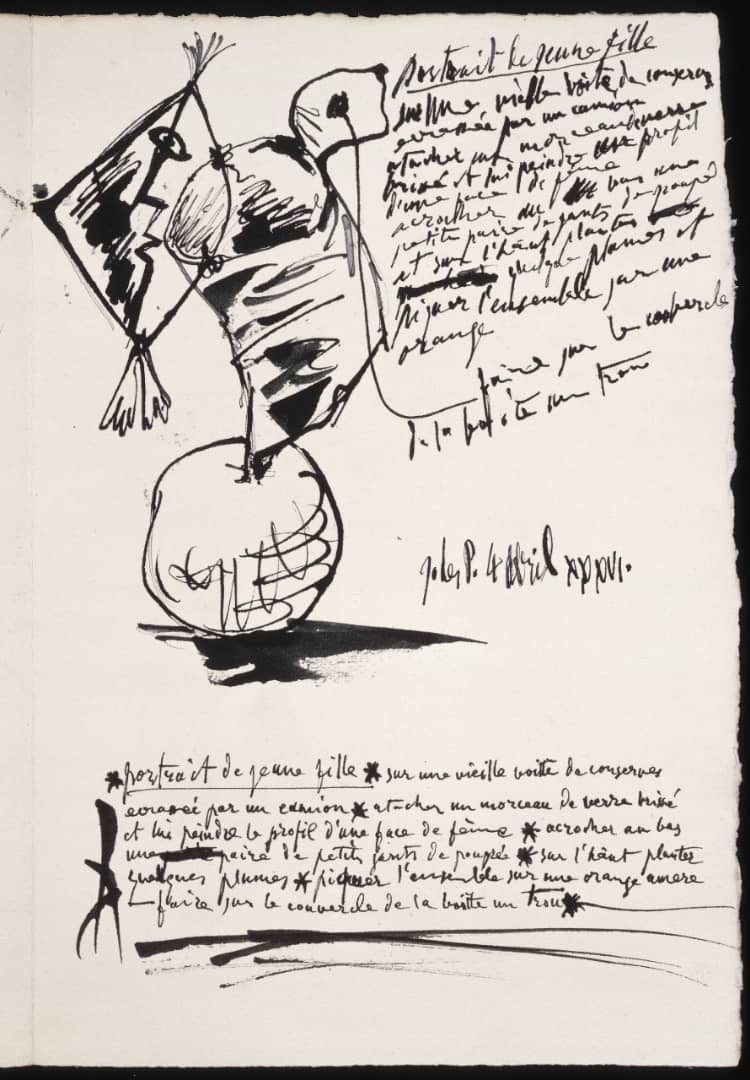 portrait de jeune fille
sur une vieille boite de conserves
ecrasée par un camion
atacher un morceau verre
brisé et lui peindre profil
d'une face de fême
acrocher au bas une
petite paire de gants de poupée
et sur l'hâut planter
quelques plumes et
piquer l'ensemble sur une
orange
faire sur le couvercle
de la boite un trou
4 Abril XXXVI.
*portrait de jeune fille * sur une vieille boitte de conserves
ecrasée par un camion * atacher un morceau de verre brisé
et lui peindre le profil d'une face de fême * acrocher au bas
une paire de petits gants de poupée * sur l'hâut planter
quelques plumes * piquer l'ensemble sur une orange amere
faire sur le couvercle de la boitte un trou *